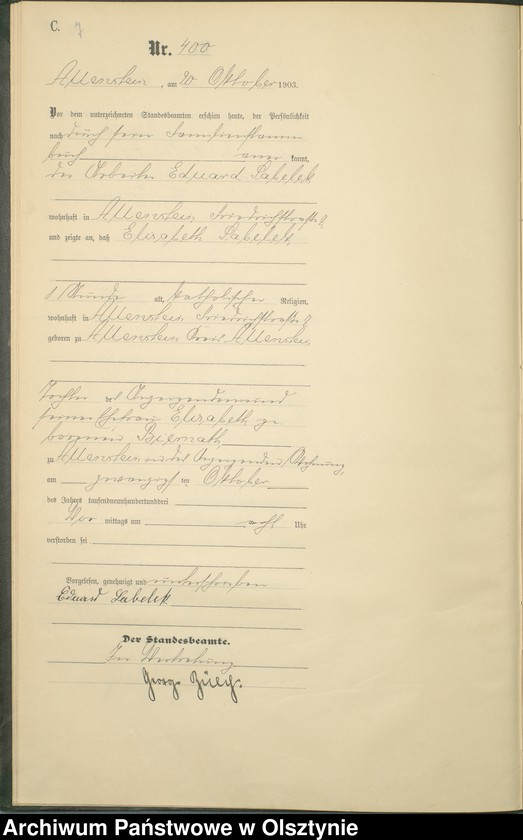 C. 7
Nr. 400
Allenstein, am 20 Oktober 1903.
Vor dem unterzeichneten Standesbeamten erschien heute, der Persönlichkeit
nach durch sein Familienstamm
buch anerkannt,
der Arbeiter Eduard Labelek
wohnhaft in Allenstein Friedrichstraße
und zeigte an, daß Elisabeth Labelek,
1 Stunde alt, katholischer Religion,
wohnhaft in Allenstein Friedrichstraße
geboren zu Allenstein Kreis Allenstein
Tochter des Anzeigenden und
seiner Ehefrau Elisabeth ge
borenen Biernath,
zu Allenstein in des Anzeigenden Wohnung
am zwanzigsten Oktober
des Jahres tausendneunhundertunddrei
Vor mittags um acht Uhr
verstorben sei
Vorgelesen, genehmigt und unterschrieben
Eduard Labelek
Der Standesbeamte.
In Vertretung
Georg
Archiwum Państwowe w Olsztynie